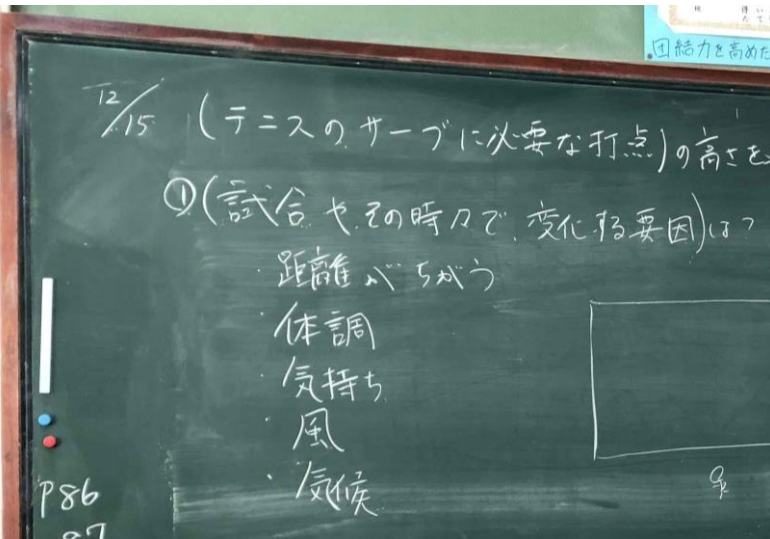 団結力を高めた
12/15 (テニスのサーブに必要な打点)の高さを
①(試合やその時々で変化する要因)は?
・距離がちがう
・体調
・気持ち
・風
・気候
P86
87